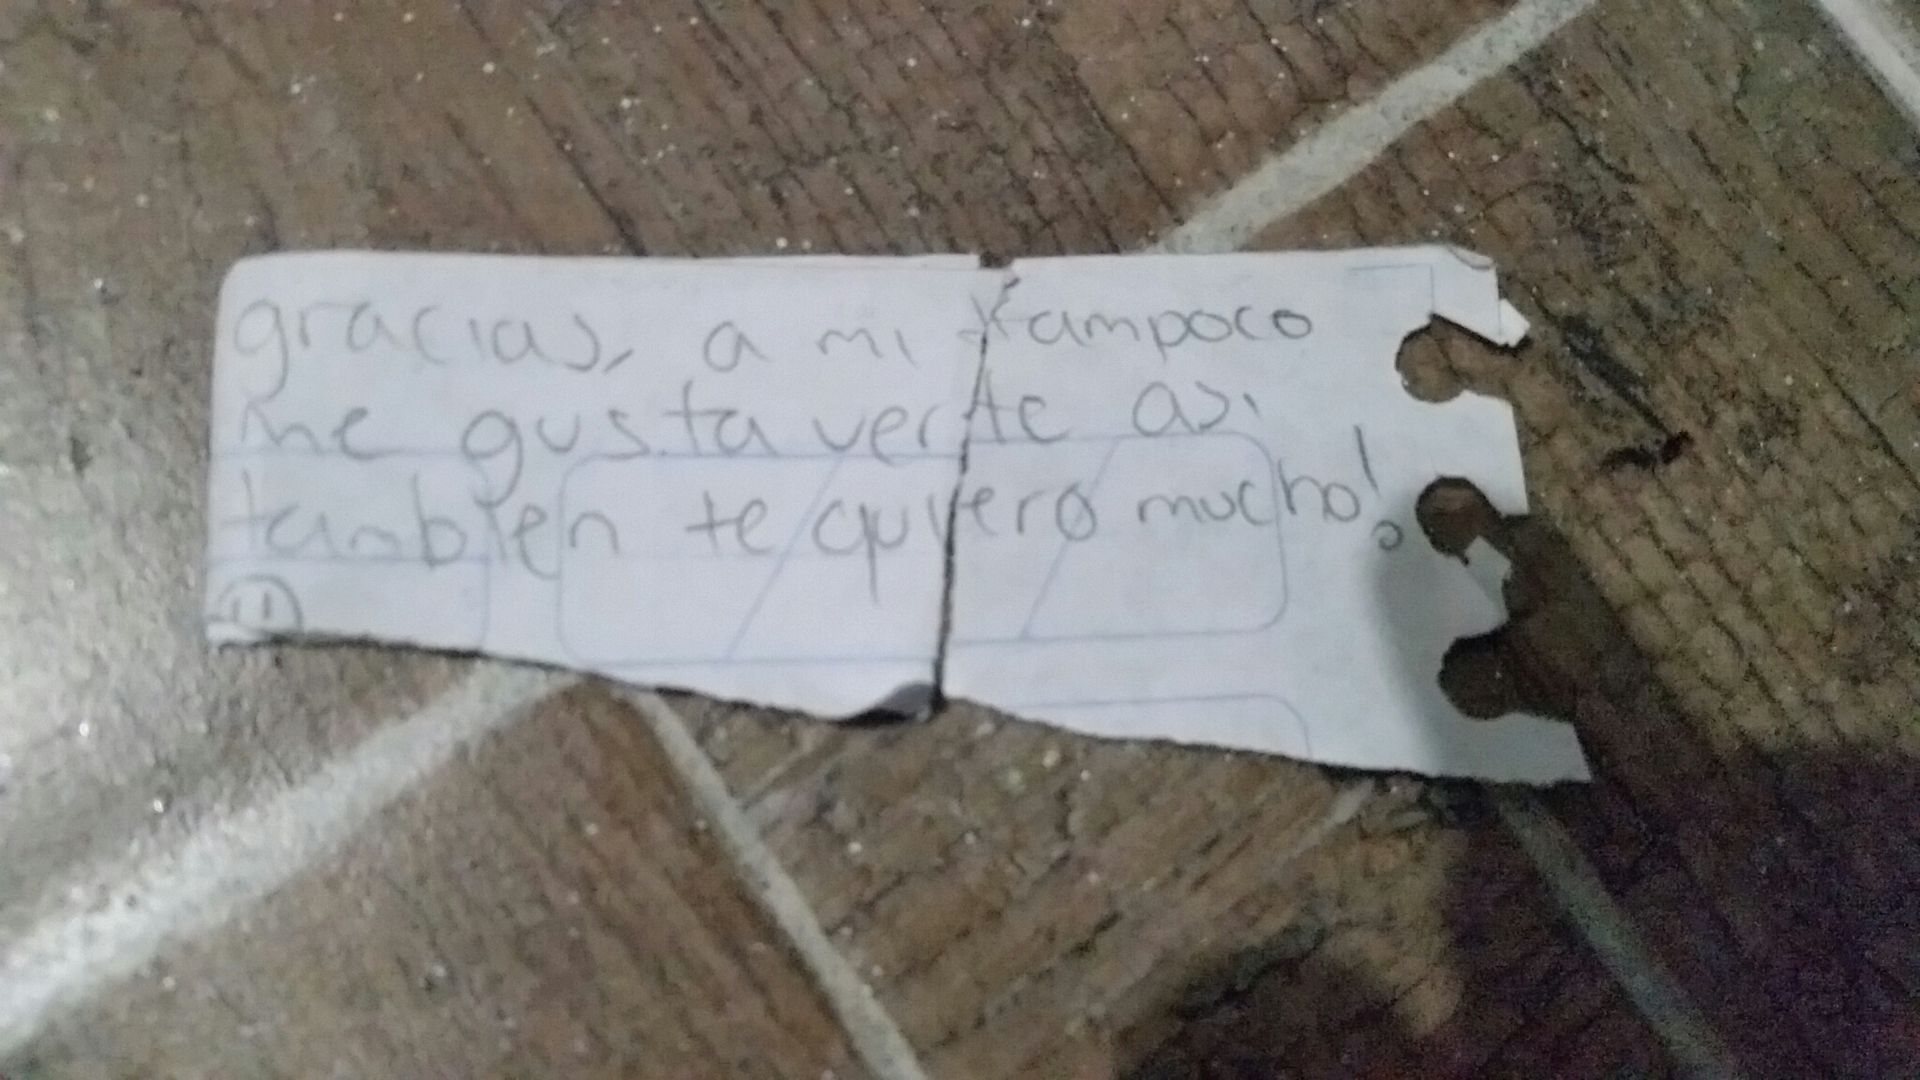 gracias, a mi tampoco
me gusta verte asi
tambien te quiero mucho!